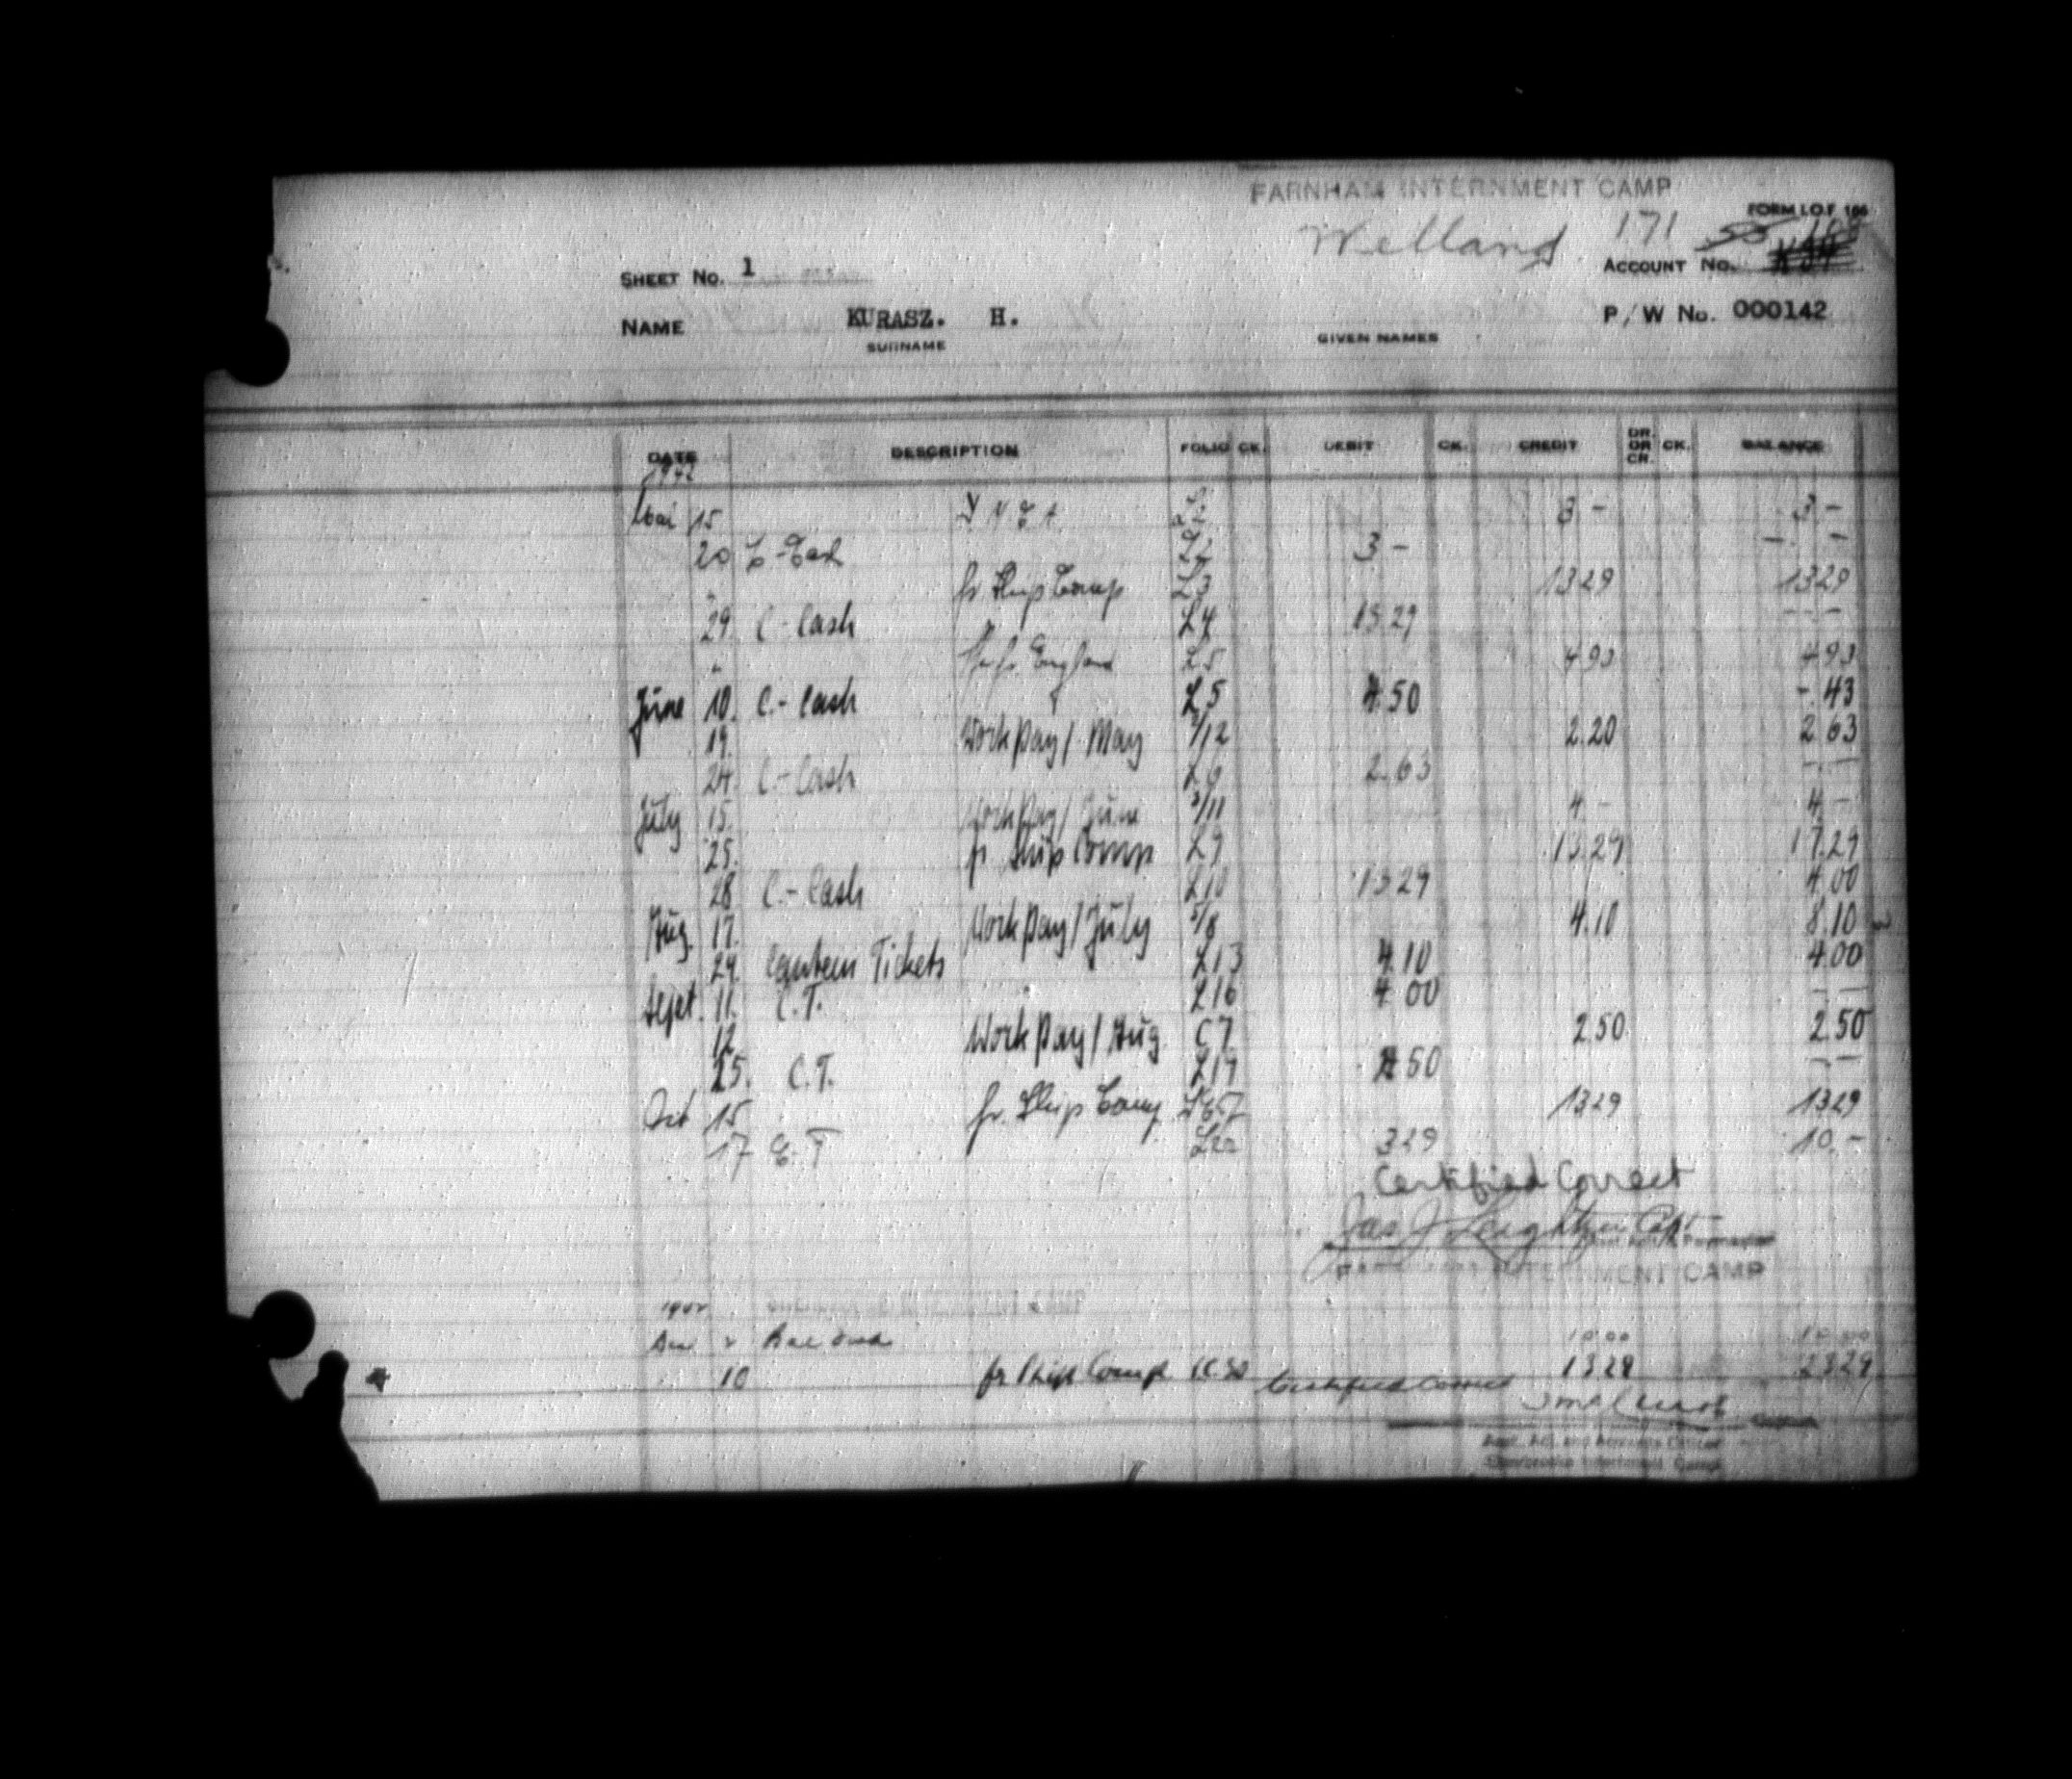 FARNHAM INTERNMENT CAMP
FORM I.O.F. 166
Welland 171
SHEET NO. 1 ACCOUNT NO.
NAME KURASZ. H. P/W No. 000142
SURNAME GIVEN NAMES
DATE DESCRIPTION FOLIO CK. DEBIT CK. CREDIT DR. OR CR. CK. BALANCE
1942
Mai 15 3 - 3 -
20 C-Cash 3 - - -
fr. Ship Comp L3 13 29 13 29
29. C.-Cash L4 13 29 - - -
" fr. England L5 4 93 4 93
June 10. C.-Cash L5 4.50 -.43
19. Work Pay / May 2/12 2.20 2.63
24. C.-Cash L6 2.63 - . -
July 15. Work Pay / June 3/11 4. - 4 -
25. fr Ship Comp L9 13.29 17.29
28 C.-Cash L10 13 29 4.00
Aug. 17. Work Pay / July 5/8 4.10 8.10
24. Canteen Tickets L13 4.10 4.00
Sept. 11. C.T. L16 4 00 - -
12. Work Pay / Aug. C7 2.50 2.50
25. C.T. L19 2 50 - -
Oct 15 fr. Ship Comp 13 29 13 29
17 C.T L22 3 29 10. -
Certified Correct
Jas J Leighton Capt
INTERNMENT CAMP
1942 INTERNMENT CAMP
10 00 10 00
10 fr Ship Comp 13 29 23 29
Certified Correct
Sherbrooke Internment Camp